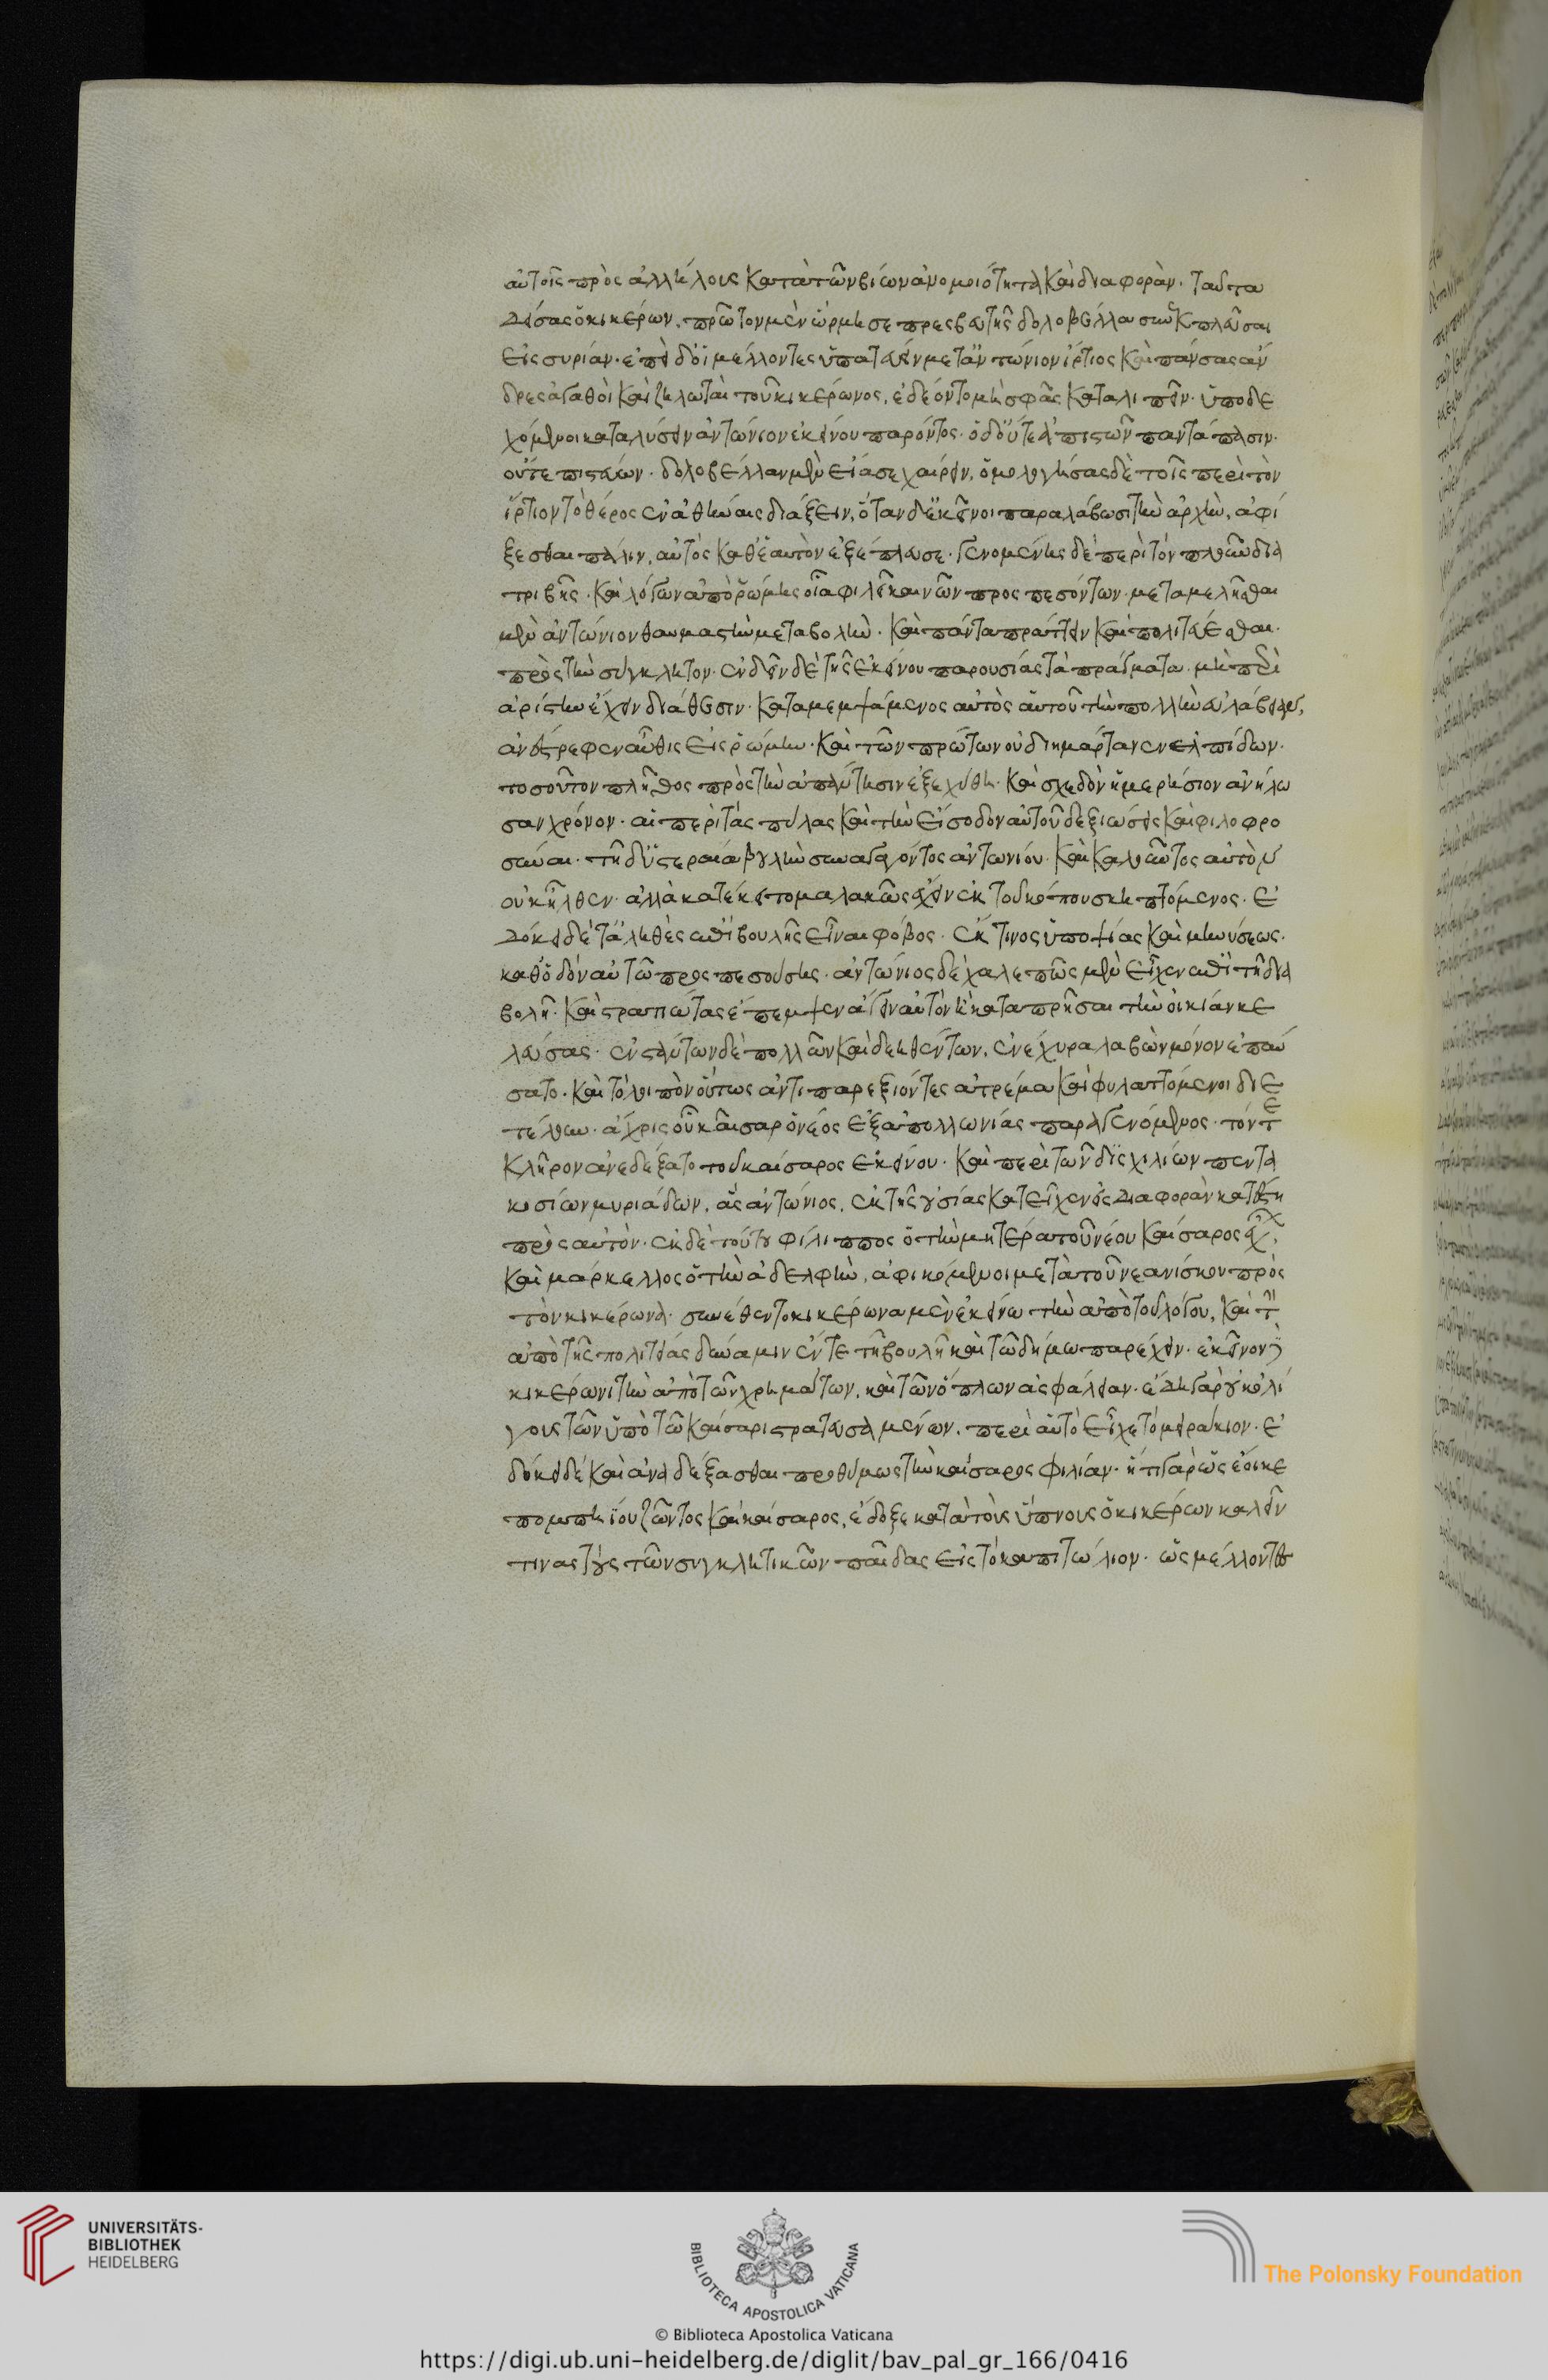 αὐτοῖς πρὸς ἀλλήλους κατὰ τῶν βίων ἀνομοιότητα καὶ διαφοράν. ταῦτα
δείσας ὁ κικέρων, πρῶτον μὲν ὥρμησε πρεσβευτὴς δολοβέλλα συνεκπλεῦσαι
εἰς συρίαν. ἐπεὶ δ' οἱ μέλλοντες ὑπατεύειν μετ' ἀντώνιον ἵρτιος καὶ πάνσας ἄν
δρες ἀγαθοὶ καὶ ζηλωταὶ τοῦ κικέρωνος, ἐδέοντο μὴ σφᾶς καταλιπεῖν. ὑποδε
χόμενοι καταλύσειν ἀντώνιον ἐκείνου παρόντος. ὁ δ' οὔτε ἀπιστῶν παντάπασιν.
οὔτε πιστεύων. δολοβέλλαν μὲν εἴασε χαίρειν, ὁμολογήσας δὲ τοῖς περὶ τὸν
ἵρτιον τὸ θέρος ἐν ἀθήναις διάξειν, ὅταν δὲ κεῖνοι παραλάβωσι τὴν ἀρχὴν, ἀφί
ξεσθαι πάλιν, αὐτὸς καθ' ἑαυτὸν ἐξέπλευσε. γενομένης δὲ περὶ τὸν πλοῦν δια
τριβῆς. καὶ λόγων ἀπὸ ῥώμης οἷα φιλεῖ καινῶν προσπεσόντων. μεταμελῆσθαι
μὲν ἀντώνιον θαυμαστὴν μεταβολὴν. καὶ πάντα πράττειν καὶ πολιτεύεσθαι.
πρὸς τὴν σύγκλητον. ἐνδεῖν δὲ τῆς ἐκείνου παρουσίας τὰ πράγματα. μὴ περὶ
ἀρίστην ἔχειν διάθεσιν. καταμεμψάμενος αὐτὸς αὑτοῦ τὴν πολλὴν εὐλάβειαν,
ἀνέστρεφεν αὖθις εἰς ῥώμην. καὶ τῶν πρώτων οὐ διημάρτανεν ἐλπίδων.
τοσοῦτον πλῆθος πρὸς τὴν ἀπάντησιν ἐξεχύθη. καὶ σχεδὸν ἡμερήσιον ἀνήλω
σαν χρόνον. αἱ περὶ τὰς πύλας καὶ τὴν εἴσοδον αὐτοῦ δεξιώσεις καὶ φιλοφρο
σύναι. τῇ δ' ὑστεραία βουλὴν συναγαγόντος ἀντωνίου. καὶ καλοῦντος αὐτὸν
οὐκ ἦλθεν. ἀλλὰ κατέκειτο μαλακῶς ἔχειν ἐκ τοῦ κόπου σκηπτόμενος. ἐ
δόκει δὲ τἀληθὲς ἐπιβουλῆς εἶναι φόβος. ἔκ τινος ὑποψίας καὶ μηνύσεως.
καθ' ὁδὸν αὐτῶ προσπεσούσης. ἀντώνιος δὲ χαλεπῶς μὲν εἶχεν ἐπὶ τῇ δια
βολῆ. καὶ στρατιώτας ἔπεμψεν ἄγειν αὐτὸν ἢ καταπρῆσαι τὴν οἰκίαν κε
λεύσας. ἐνστάντων δὲ πολλῶν καὶ δεηθέντων, ἐνέχυρα λαβὼν μόνον ἐπαύ
σατο. καὶ τὸ λοιπὸν οὕτως ἀντιπαρεξιόντες ἀτρέμα καὶ φυλαττόμενοι διε
τέλουν. ἄχρις οὗ καῖσαρ ὁ νέος ἐξ ἀπολλωνίας παραγενόμενος. τόν τε
κλῆρον ἀνεδέξατο τοῦ καίσαρος ἐκείνου. καὶ περὶ τῶν δισχιλίων πεντα
κοσίων μυριάδων, ἃς ἀντώνιος, ἐκ τῆς οὐσίας κατεῖχεν εἰς διαφορὰν κατέστη
πρὸς αὐτὸν. ἐκ δὲ τούτου φίλιππος ὁ τὴν μητέρα τοῦ νέου καίσαρος ἔχ,
καὶ μάρκελλος ὁ τὴν ἀδελφὴν, ἀφικόμενοι μετὰ τοῦ νεανίσκου πρὸς
τὸν κικέρωνα. συνέθεντο κικέρωνα μὲν ἐκείνω τὴν ἀπὸ τοῦ λόγου, καὶ τὴν
ἀπὸ τῆς πολιτείας δύναμιν ἔν τε τῇ βουλῇ καὶ τῶ δήμω παρέχειν. ἐκεῖνον δὲ
κικέρωνι τὴν ἀπὸ τῶν χρημάτων, καὶ τῶν ὅπλων ἀσφάλειαν. ἤδη γὰρ οὐκ ὀλί
γους τῶν ὑπὸ τῶ καίσαρι στρατευσαμένων, περὶ αὑτὸ εἶχε τὸ μειράκιον. ἐ
δόκει δὲ καὶ ἀναδέξασθαι προθύμως τὴν καίσαρος φιλίαν. ἔτι γὰρ ὡς ἔοικε
πομπηίου ζῶντος καὶ καίσαρος, ἔδοξε κατὰ τοὺς ὕπνους ὁ κικέρων καλεῖν
τινας τοὺς τῶν συγκλητικῶν παῖδας εἰς τὸ καπιτώλιον. ὡς μέλλοντος
UNIVERSITÄTS-
BIBLIOTHEK
HEIDELBERG
BIBLIOTECA APOSTOLICA VATICANA
The Polonsky Foundation
© Biblioteca Apostolica Vaticana
https://digi.ub.uni-heidelberg.de/diglit/bav_pal_gr_166/0416